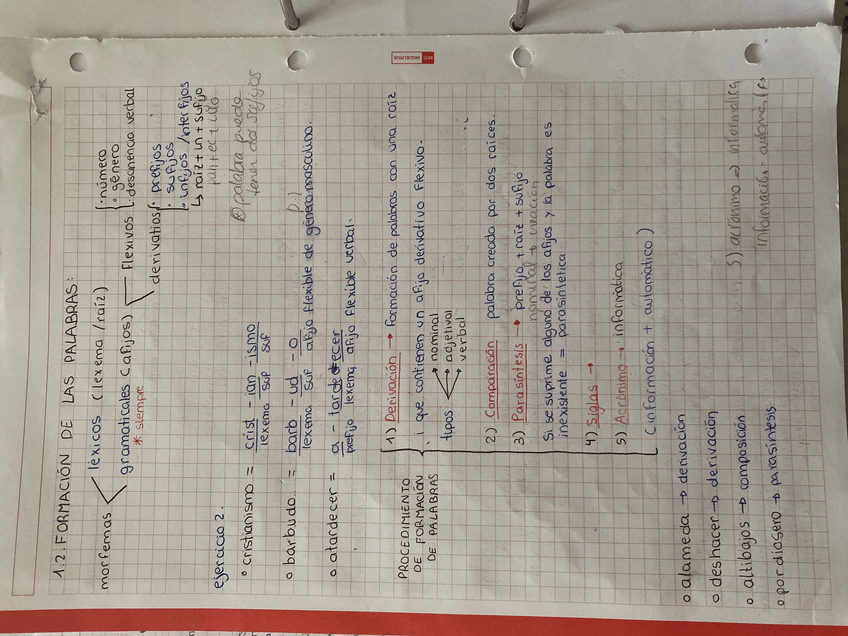 1.2. FORMACIÓN DE LAS PALABRAS:
morfemas
léxicos (lexema / raíz)
gramaticales (afijos)
* siempre
flexivos
· número
· género
· desinencia verbal
derivatios
· prefijos
· sufijos
· infijos / interfijos
↳ raíz + in + sufijo
pun + ec + illo
palabra puede
tener dos sufijos
ejercicio 2.
• cristanismo = crist - ian - ismo
lexema suf suf
o barbudo = barb - ud - o
lexema suf afijo flexible de género masculino.
o atardecer = a - tarde - ecer
prefijo lexema afijo flexible verbal.
PROCEDIMIENTO
DE FORMACIÓN
DE PALABRAS
1) Derivación → formación de palabras con una raíz
i que contienen un afijo derivativo flexivo.
tipos
nominal
adjetival
verbal
2) Comparación palabra creada por dos raíces.
3) Parasíntesis → prefijo + raíz + sufijo
nominal → creación
Si se suprime alguno de los afijos y la palabra es
inexistente = parasintética
4) Siglas →
5) Acrónimo → informática
(información + automático)
5) acrónimo => informática
información + automática
o alameda → derivación
o deshacer → derivación
o altibajos → composición
o pordiosero → parasíntesis
MIQUELRIUS